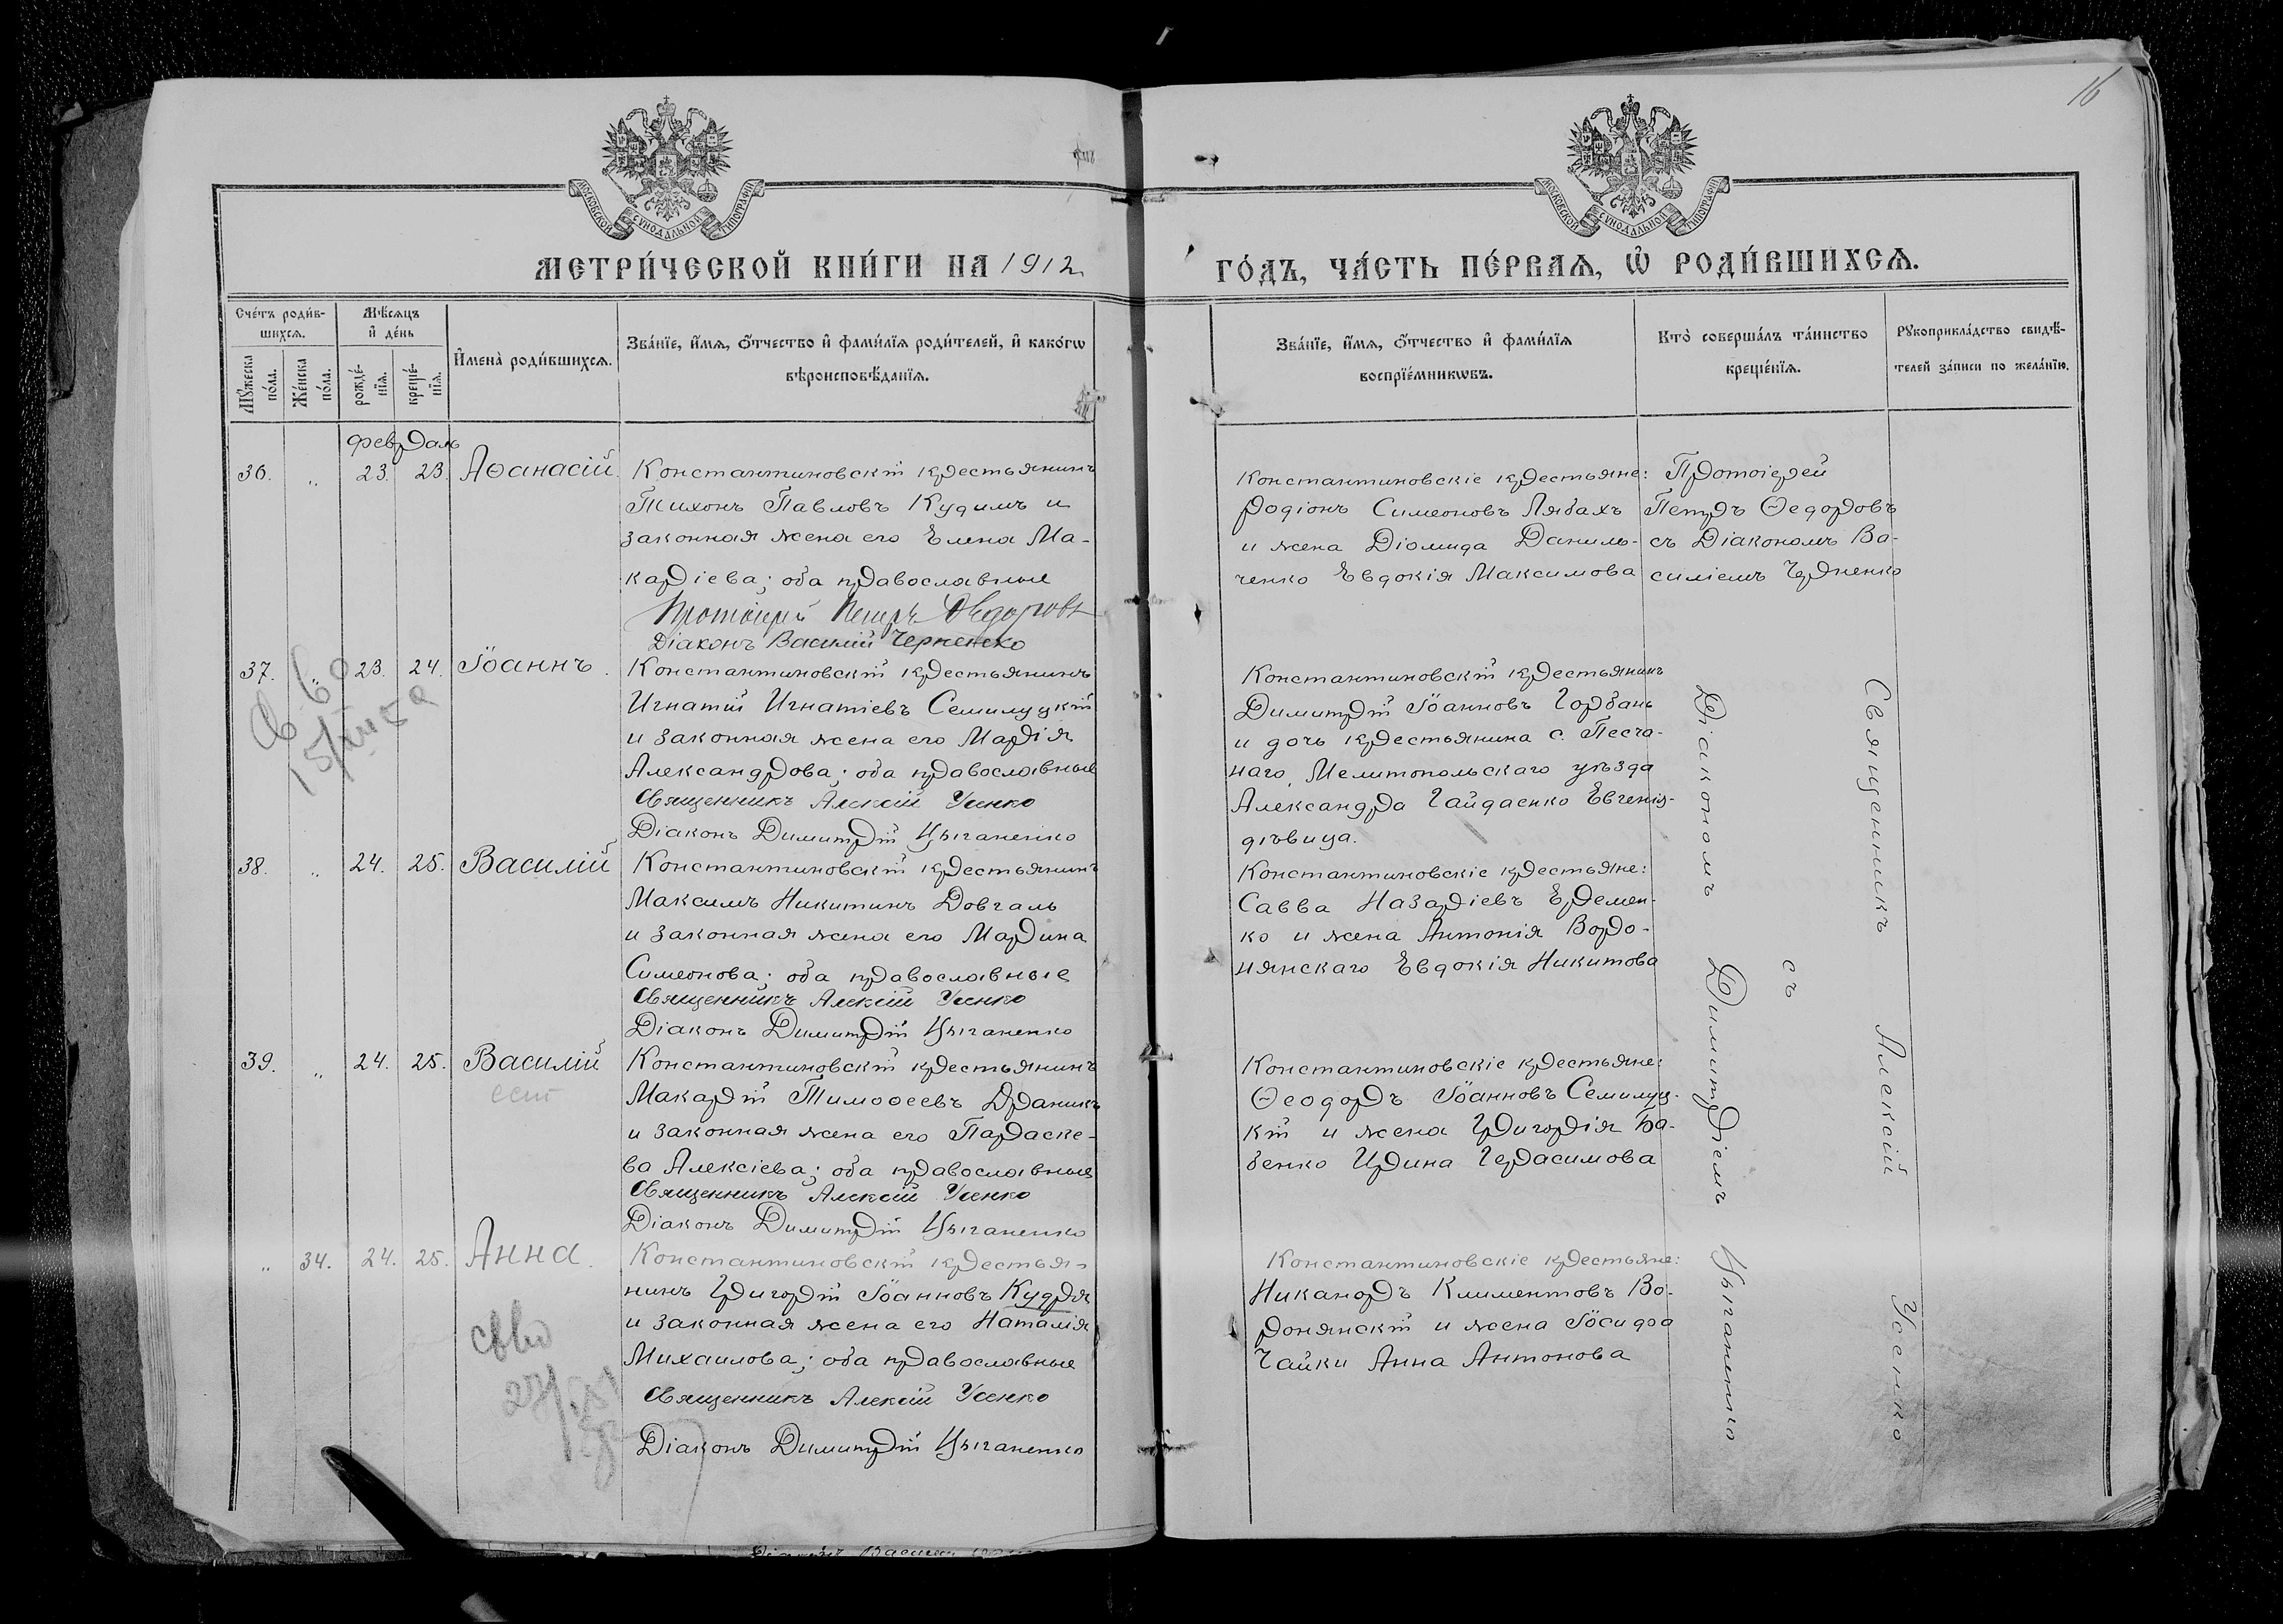 16
МОСКОВСКОЙ СУНОДАЛЬНОЙ ТИПОГРАФІИ
МОСКОВСКОЙ СУНОДАЛЬНОЙ ТИПОГРАФІИ
МЕТРИ́ЧЕСКОЙ КНИ́ГИ НА 1912
ГО́ДЪ, ЧА́СТЬ ПЕ́РВАѦ, Ѡ҆ РОДИ́ВШИХСѦ.
Сче́тъ роди́в-
шихсѧ.
Мꙋ́жеска
по́ла.
Же́нска
по́ла.
Мѣ́сѧцъ
и҆ де́нь
рожде́-
нїѧ.
креще́-
нїѧ.
И҆мена̀ роди́вшихсѧ.
Зва́нїе, и҆́мѧ, ѻ҆́тчество и҆ фами́лїѧ роди́телей, и҆ како́гѡ
вѣроисповѣ́данїѧ.
Зва́нїе, и҆́мѧ, ѻ҆́тчество и҆ фами́лїѧ
воспрїе́мникѡвъ.
Кто̀ соверша́лъ та́инство
креще́нїѧ.
Рꙋкоприкла́дство свидѣ́-
телей за́писи по жела́нїю.
февраль
36. „ 23. 23. Аѳанасій. Константиновскій крестьянинъ
Тихонъ Павловъ Кудимъ и
законная жена его Елена Ма-
каріева; оба православные
Протоіерей Петръ Ѳедоровъ
Діаконъ Василий Черненко
Константиновскіе крестьяне:
Родіонъ Симеоновъ Лябахъ
и жена Діомида Даниль-
ченко Евдокія Максимова
Протоіерей
Петръ Ѳедоровъ
съ Діакономъ Ва-
силіемъ Черненко
37. „ 23. 24. Іоаннъ. Константиновскій крестьянинъ
Игнатій Игнатіевъ Семилуцкій
и законная жена его Марія
Александрова; оба православные
Священникъ Алексій Усенко
Діаконъ Димитрій Цыганенко
Константиновскій крестьянинъ
Димитрій Іоанновъ Горбань
и дочь крестьянина с. Песча-
наго, Мелитопольскаго уѣзда
Александра Гайдаенко Евгенія-
дѣвица.
38. „ 24. 25. Василій Константиновскій крестьянинъ
Максимъ Никитинъ Довгаль
и законная жена его Марина
Симеонова; оба православные
Священникъ Алексій Усенко
Діаконъ Димитрій Цыганенко
Константиновскіе крестьяне:
Савва Назаріевъ Еремен-
ко и жена Антонія Воро-
нянскаго Евдокія Никитова
39. „ 24. 25. Василій Константиновскій крестьянинъ
Макарій Тимоѳеевъ Драникъ
и законная жена его Параске-
ва Алексіева; оба православные
Священникъ Алексій Усенко
Діаконъ Димитрій Цыганенко
Константиновскіе крестьяне:
Ѳеодоръ Іоанновъ Семилуц-
кій и жена Григорія Ба-
бенко Ирина Герасимова
„ 34. 24. 25. Анна. Константиновскій крестья-
нинъ Григорій Іоанновъ Кудря
и законная жена его Наталія
Михаилова; оба православные
Священникъ Алексій Усенко
Діаконъ Димитрій Цыганенко
Константиновскіе крестьяне:
Никаноръ Климентовъ Во-
ронянскій и жена Іосифа
Чайки Анна Антонова
Священникъ Алексій Усенко
съ
Діакономъ Димитріемъ Цыганенко